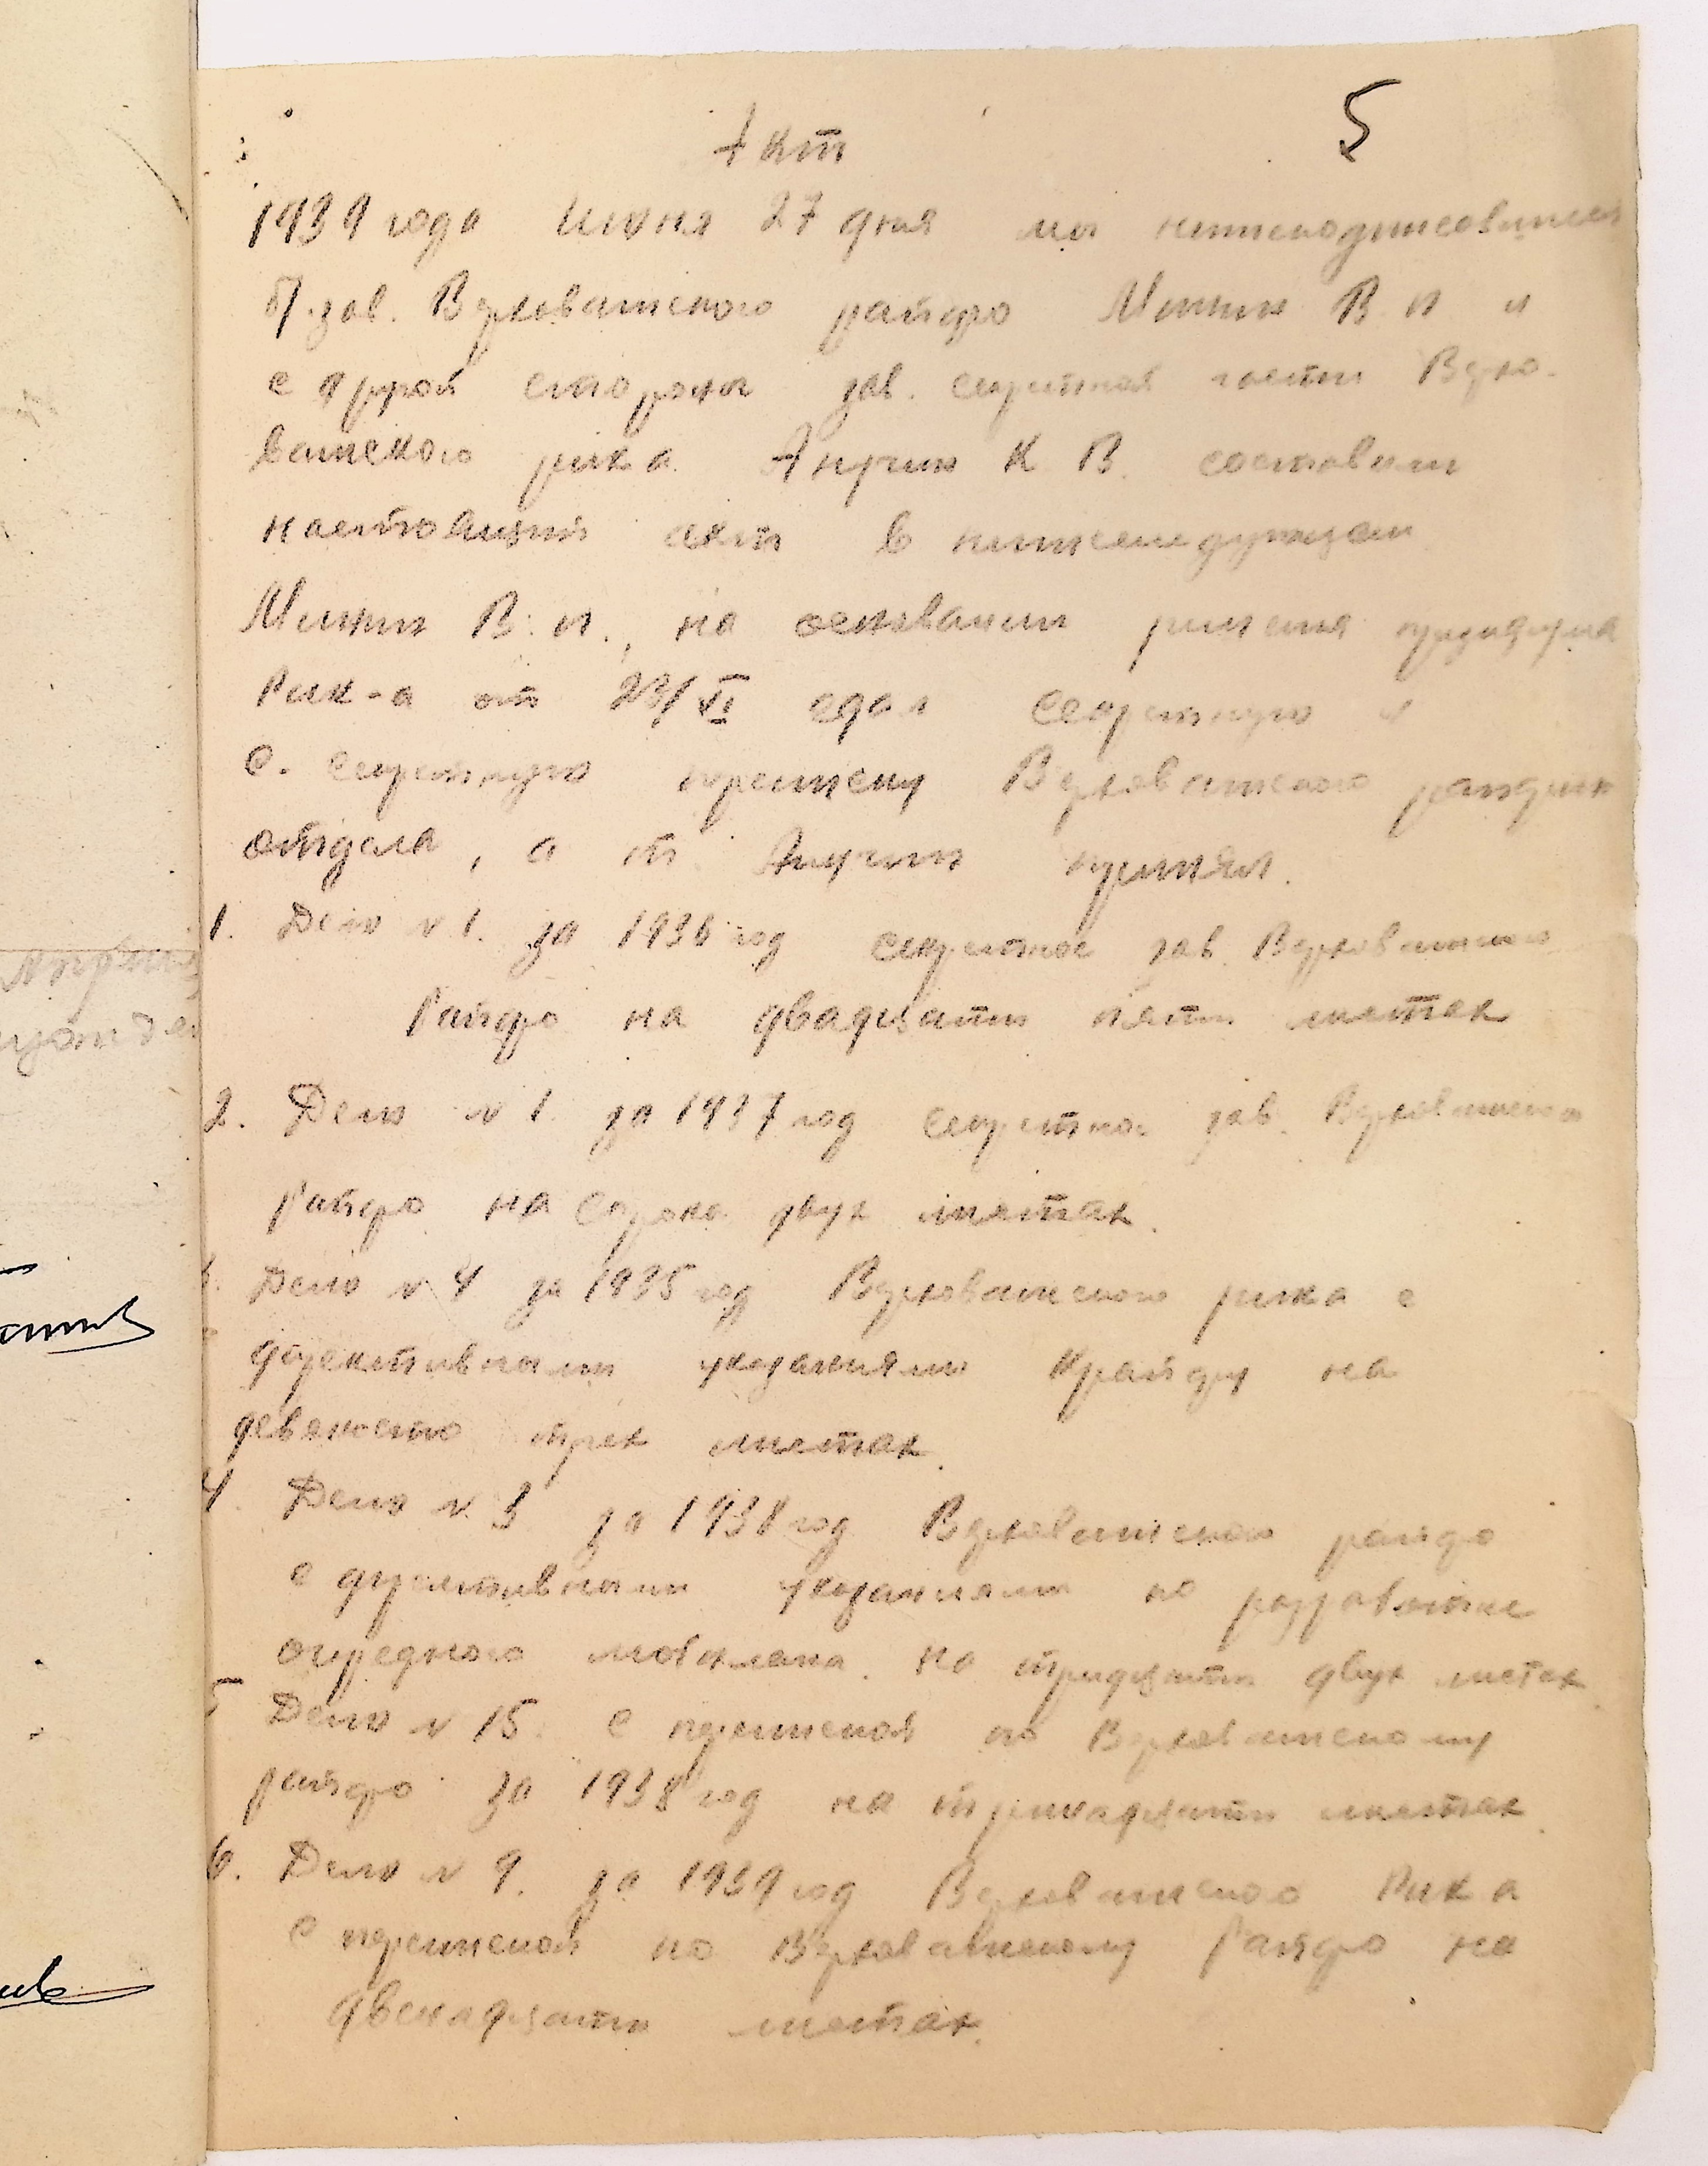 5
Акт
1939 года июня 27 дня мы нижеподписавшиеся
б/зав. Верховажского райфо Минин В. П и
с другой стороны зав. секретной части Верхо-
важского рика Анучин К В. составили
настоящий акт в нижеследующем
Минин В. П., на основании решения президиума
Рик-а от 23/VI сдал секретную и
с. секретную переписку Верховажского райфин
отдела, а т. Анучин принял.
1. Дело № 1. за 1936 год секретное зав. Верховажского
Райфо на двадцати пяти листах
2. Дело № 1. за 1937 год секретное зав. Верховажского
Райфо на сорока двух листах.
Дело № 4 за 1935 год Верховажского рика с
директивными указаниями Крайфу на
девяносто трех листах.
4. Дело № 3 за 1938 год Верховажского райфо
с директивными указаниями по разработке
очередного мобплана. на тридцати двух листах.
5 Дело № 15. с перепиской по Верховажскому
райфо за 1938 год на тринадцати листах.
6. Дело № 9. за 1939 год Верховажского Рика
с перепиской по Верховажскому Райфо на
двенадцати листах.